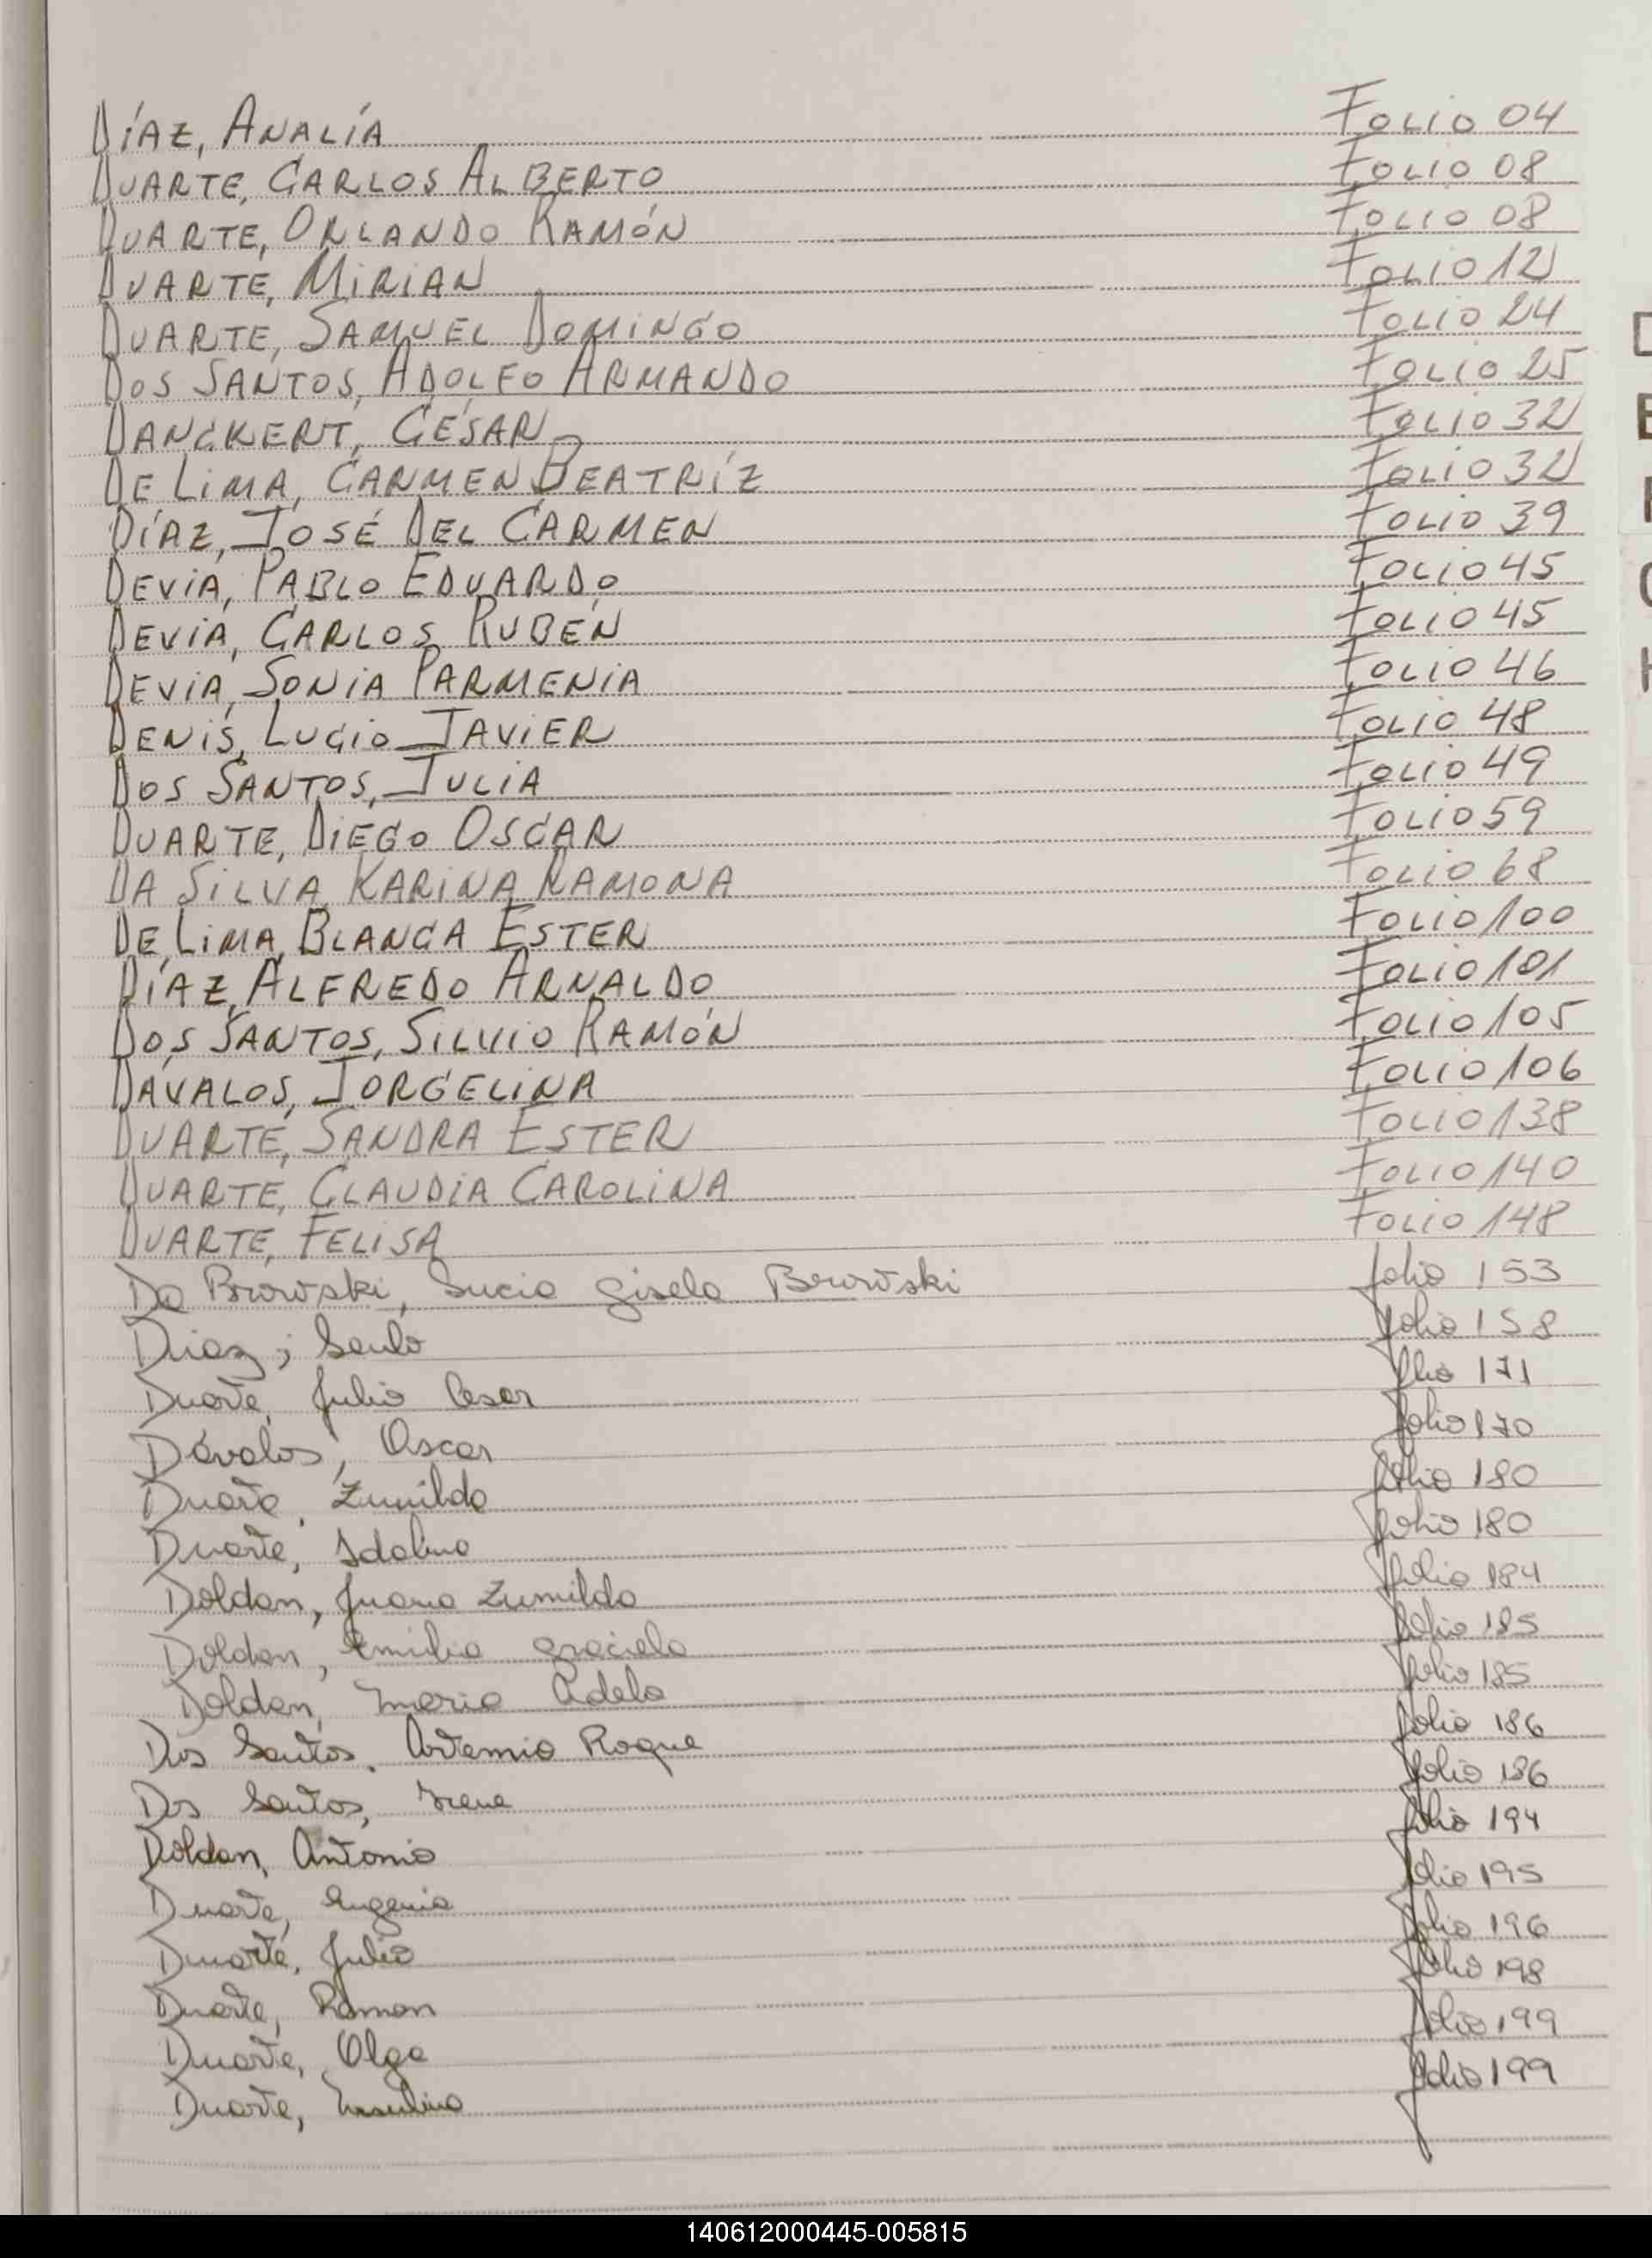 DÍAZ, ANALÍA Folio 04
DUARTE, CARLOS ALBERTO Folio 08
DUARTE, ORLANDO RAMÓN Folio 08
DUARTE, MIRIAN Folio 12
DUARTE, SAMUEL DOMINGO Folio 24
DOS SANTOS, ADOLFO ARMANDO Folio 25
DANCKERT, CÉSAR Folio 32
DE LIMA, CARMEN BEATRÍZ Folio 32
DÍAZ, JOSÉ DEL CARMEN Folio 39
DEVIA, PABLO EDUARDO Folio 45
DEVIA, CARLOS RUBÉN Folio 45
DEVIA, SONIA PARMENIA Folio 46
DENIS, LUCIO JAVIER Folio 48
DOS SANTOS, JULIA Folio 49
DUARTE, DIEGO OSCAR Folio 59
DA SILVA, KARINA RAMONA Folio 68
DE LIMA, BLANCA ESTER Folio 100
DÍAZ, ALFREDO ARNALDO Folio 101
DOS SANTOS, SILVIO RAMÓN Folio 105
DÁVALOS, JORGELINA Folio 106
DUARTE, SANDRA ESTER Folio 138
DUARTE, CLAUDIA CAROLINA Folio 140
DUARTE, FELISA Folio 148
Da Browski, Lucia Gisela Browski folio 153
Diaz, Saulo folio 158
Duarte, Julio Cesar folio 171
Dávalos, Oscar folio 170
Duarte, Zunilda folio 180
Duarte, Idalina folio 180
Doldan, Juana Zunilda folio 184
Doldan, Emilia Graciela folio 185
Doldan, Maria Adela folio 185
Dos Santos, Artemio Roque folio 186
Dos Santos, Irene folio 186
Doldan, Antonio folio 194
Duarte, Eugenia folio 195
Duarte, Julio folio 196
Duarte, Ramon folio 198
Duarte, Olga folio 199
Duarte, folio 199
140612000445-005815